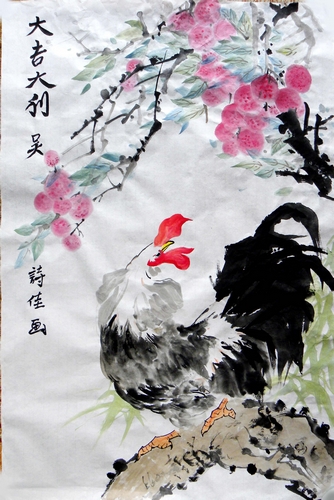 大吉大利
吴
詩佳画